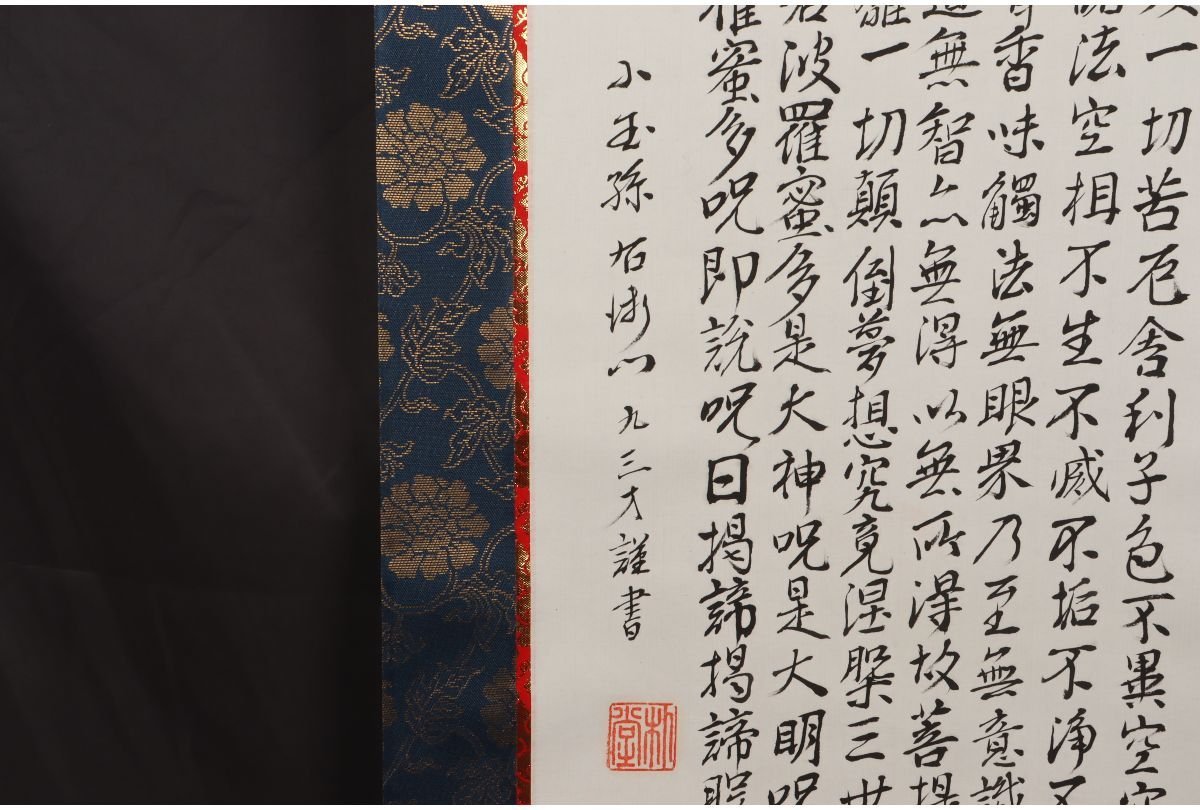 一切苦厄舎利子色不異空空
法空相不生不滅不垢不浄不
香味觸法無眼界乃至無意識
無智亦無得以無所得故菩提
離一切顛倒夢想究竟涅槃三世
若波羅蜜多是大神呪是大明呪
羅蜜多呪即説呪曰掲諦掲諦般
小玉孫右衛門九三才謹書